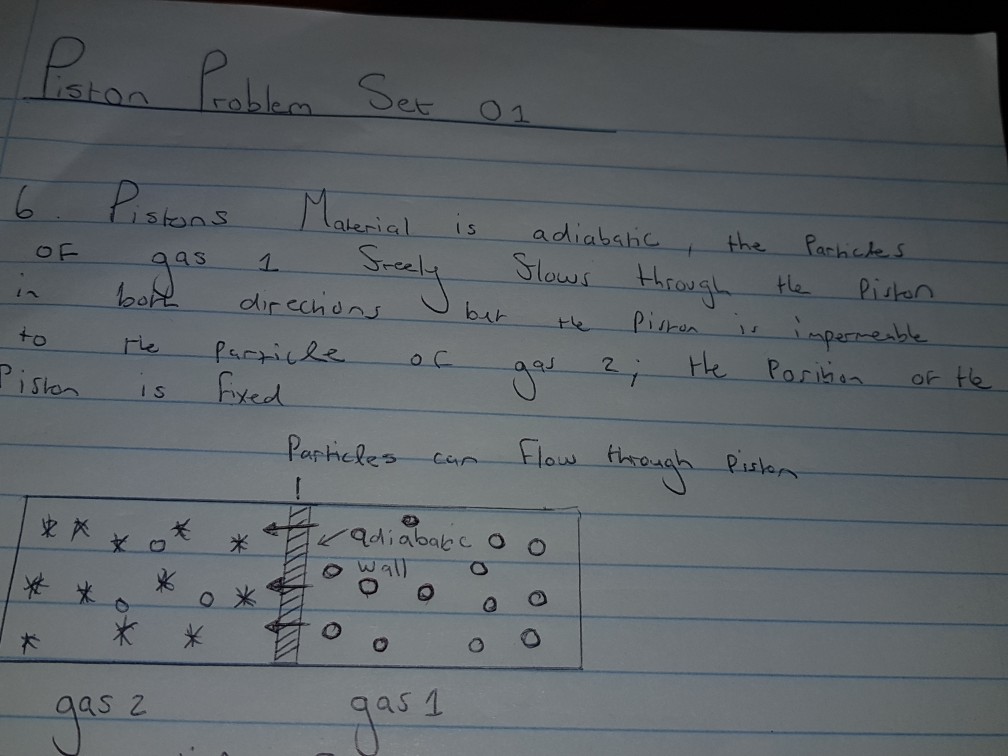 Piston Problem Set 01
6. Pistons Material is adiabatic, the Particles
OF gas 1 freely flows through the Piston
in both directions but the Piston is impermeable
to the Particle of gas 2; the Position of the
Piston is fixed
Particles can Flow through Piston
adiabatic
wall
gas 2 gas 1